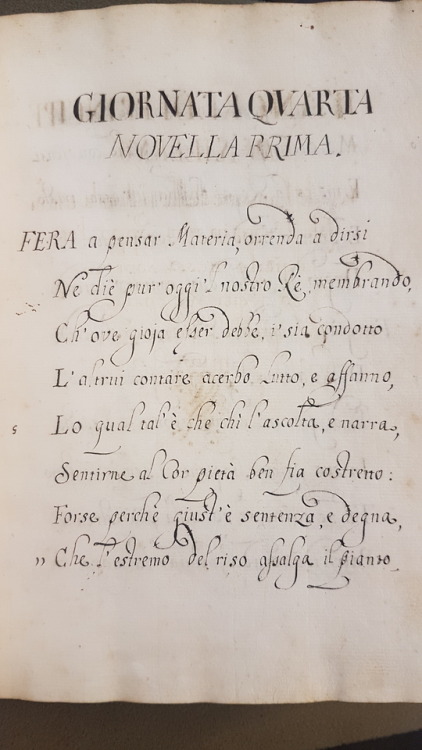 GIORNATA QVARTA
NOVELLA PRIMA.
FERA a pensar Materia, orrenda a dirsi
Ne diè pur'oggi il nostro Rè, membrando,
Ch'ove gioja esser debbe, i' sia condotto
L'altrui contare acerbo lutto, e affanno,
5 Lo qual tal'è che chi l'ascolta, e narra,
Sentirne al Cor pietà ben fia costretto:
Forse perchè giust'è sentenza, e degna,
,, Che l'estremo del riso assalga il pianto.